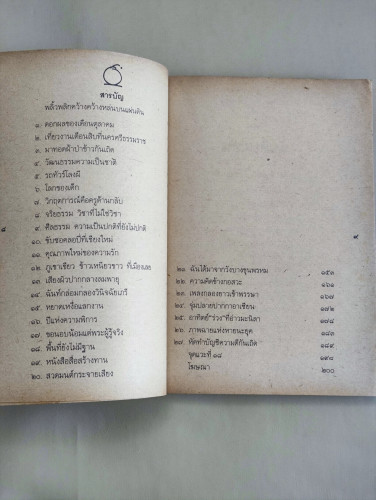 สารบัญ
พลิ้วพลิกคว้างคว้างหล่นบนแผ่นดิน
๑. ดอกผลของเดือนตุลาคม
๒. เที่ยวงานเดือนสิบที่นครศรีธรรมราช
๓. มาทอดผ้าป่าข้าวกันเถิด
๔. วัฒนธรรมความเป็นชาติ
๕. รถทัวร์โลงผี
๖. โลกของเด็ก
๗. วิกฤตการณ์คือครูด้านกลับ
๘. จริยธรรม วิชาที่ไม่ใช่วิชา
๙. ศีลธรรม ความเป็นปกติที่ยังไม่ปกติ
๑๐. ขับซอคลอปี่ที่เชียงใหม่
๑๑. คุณภาพใหม่ของความรัก
๑๒. ภูเขาเขียว ข้าวเหนียวขาว ที่เมืองเลย
๑๓. เสียงผิวปากกลางลมพายุ
๑๔. ฉันท์กล่อมกลองวินิจฉัยเภรี
๑๕. หยาดเหงื่อแลกงาน
๑๖. ปีแห่งความพิการ
๑๗. ขอนอบน้อมแด่พระผู้รู้จริง
๑๘. พื้นที่ยังไม่มีฐาน
๑๙. หนังสือสื่อสร้างทาน
๒๐. สวดมนต์กระจายเสียง
๘
๙
๒๑ ฉันได้มาจากวังบางขุนพรหม ๑๕๓
๒๒ ความคิดข้างกอสวะ ๑๖๑
๒๓. เพลงกลองยาวเข้าพรรษา ๑๖๗
๒๔. ซุ่มปลายปากกาอาเซียน ๑๗๔
๒๕. อาทิตย์"ร่วง"ที่อ่าวมะนิลา ๑๗๘
๒๖. ภาพฉายแห่งหายนะยุค ๑๘๓
๒๗. หัดทำบัญชีความดีกันเถิด ๑๘๙
จุดแวะที่ ๑๘ ๑๙๘
โฆษณา ๒๐๐